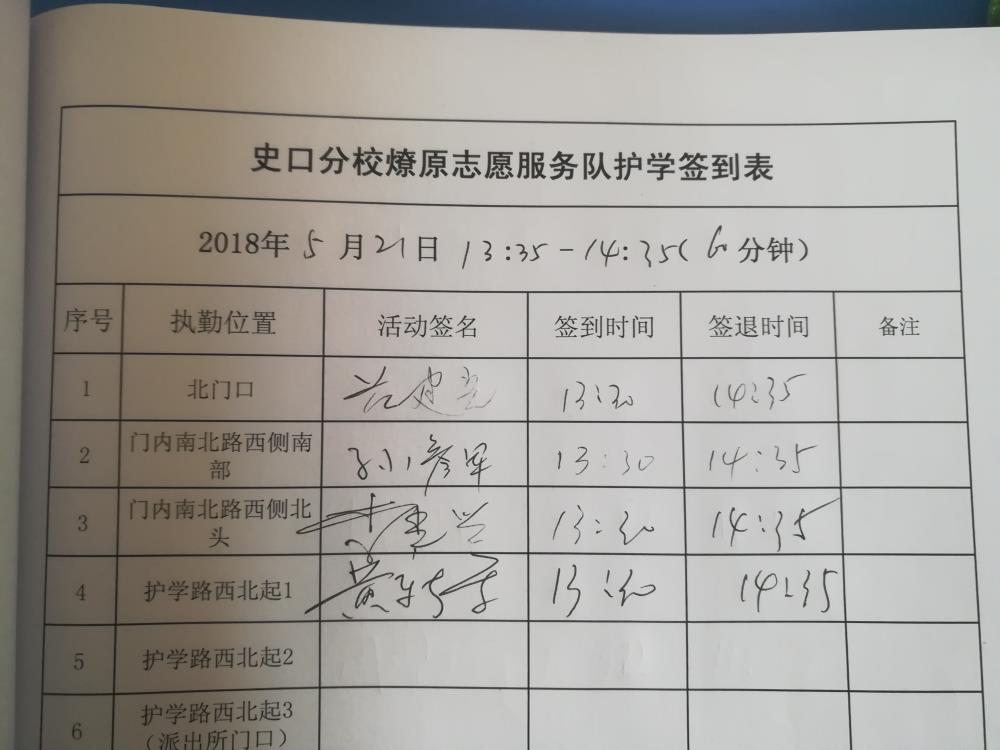 史口分校燎原志愿服务队护学签到表
2018年 5 月 21 日 13:35-14:35(60分钟)
序号 执勤位置 活动签名 签到时间 签退时间 备注
1 北门口 13:30 14:35
2 门内南北路西侧南 13:30 14:35
部
3 门内南北路西侧北 13:30 14:35
头
4 护学路西北起1 13:30 14:35
5 护学路西北起2
6 护学路西北起3
(派出所门口)